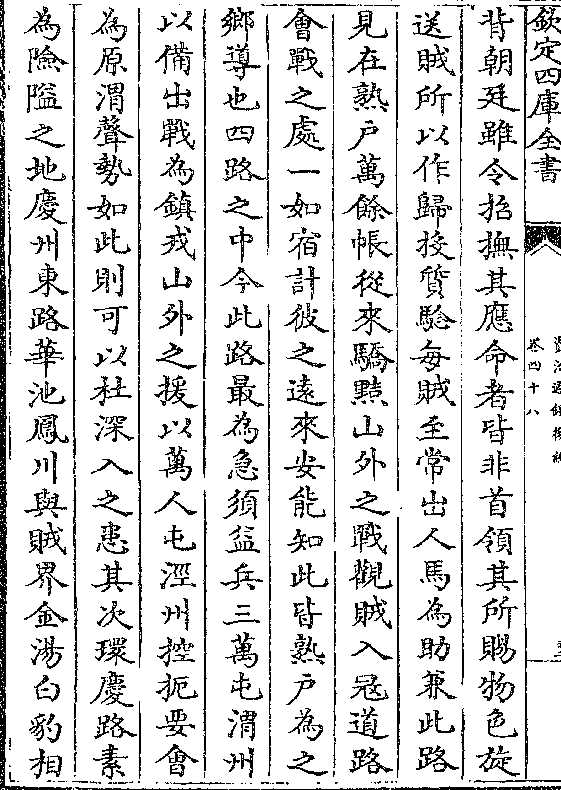 欽定四庫全書
卷四十八
背朝廷雖令招撫其應命者皆非首領其所賜物色旋
送賊所以作歸投質驗每賊至常出人馬為助兼此路
見在熟户萬餘帳從來驕黠山外之戰觀賊入冦道路
會戰之處一如宿計彼之逺來安能知此皆熟户為之
鄉導也四路之中今此路最為急須益兵三萬屯渭州
以備出戰為鎮戎山外之援以萬人屯涇州控扼要㑹
為原渭聲勢如此則可以杜深入之患其次環慶路素
為險隘之地慶州東路華池鳳川與賊界金湯白豹相